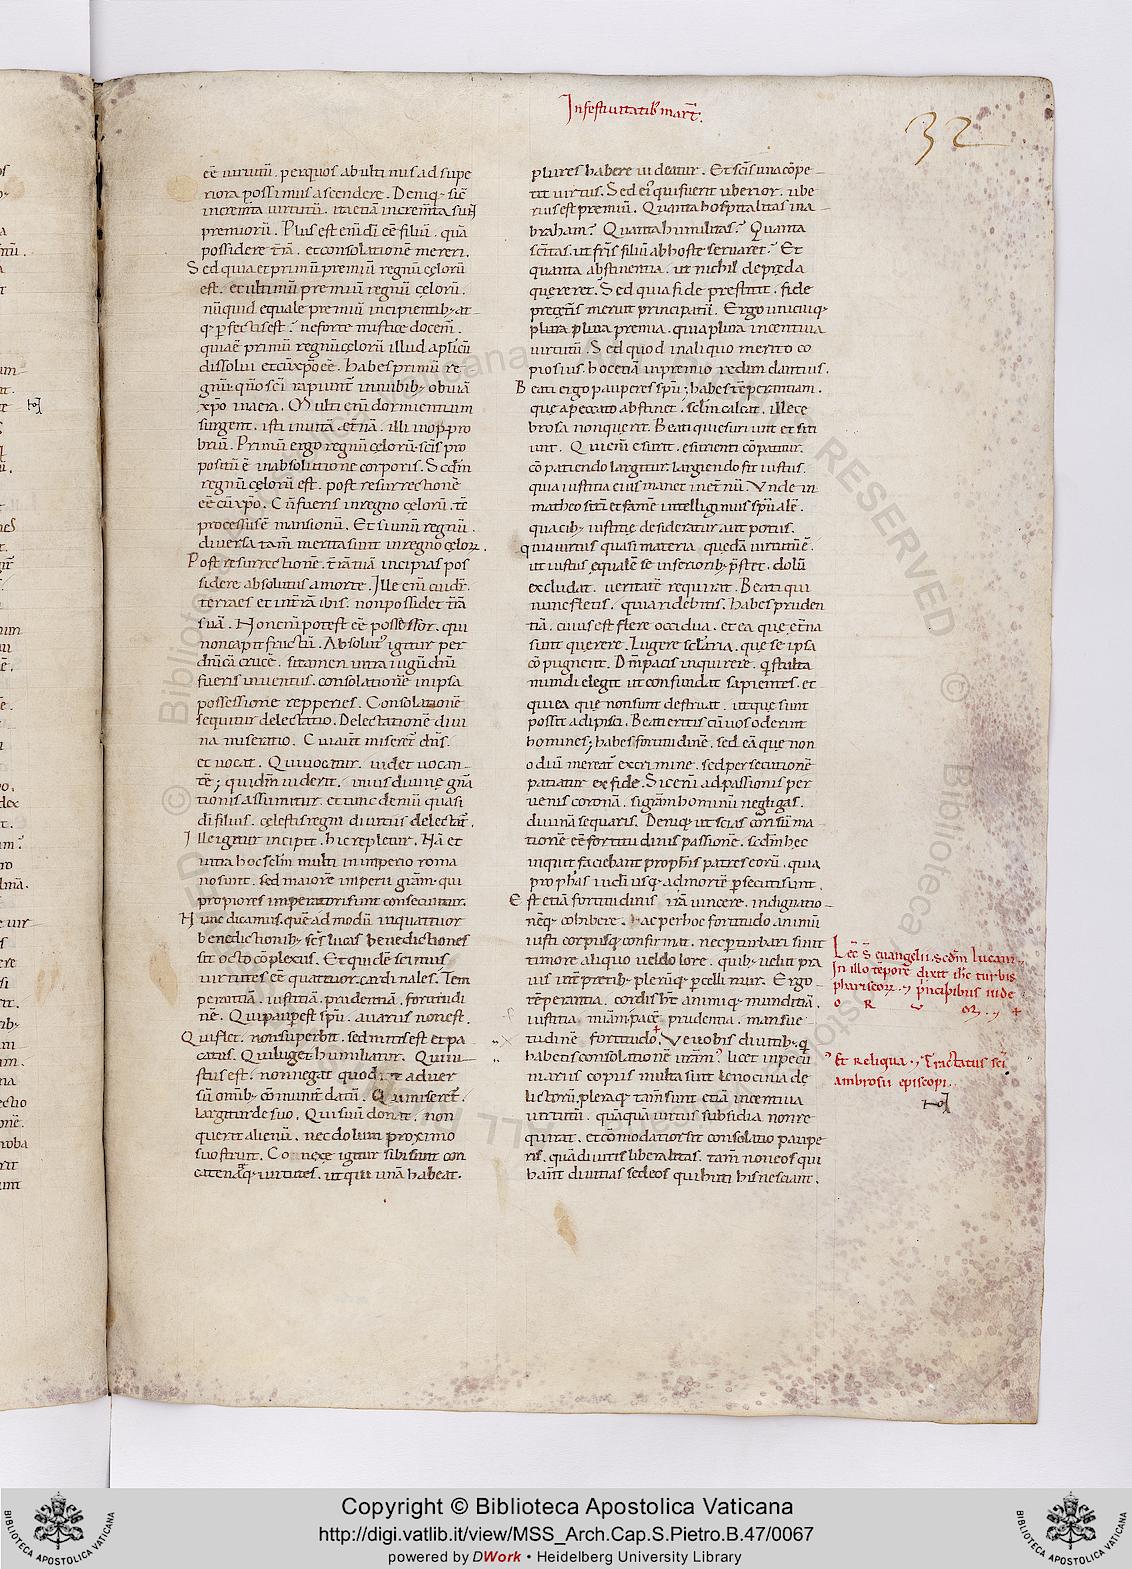 In festiuitatib; mart̄.
32
eē uirtutū. per quos ab ultimis ad supe
riora possimus ascendere. Deniq; sic̄
increm̄ta uirtutū. ita etiā increm̄ta sunt
premiorū. Plus est enī dī eē filiū. quā
possidere t̄rā. et consolationē mereri.
Sed quia et primū premiū regnū cęlorū
est. et ultimū premiū regnū cęlorū.
nūquid equale premiū incipientib; at
q; pfectis est? ne forte mistice docem̄.
quia ē primū regnū cęlorū illud aplicū
dissolui et cū xp̄o eē. habes primū re
gnū. quo sc̄i rapiunt̄ in nubib; obuiā
xp̄o in aera. Multi enī dormientium
surgent. isti in uitā. et̄nā. illi in opp̄ro
briū. Primū ergo regnū cęlorū. sc̄is pro
positū ē in absolutione corporis. Scdm̄
regnū cęlorū est. post resurrectionē
eē cū xp̄o. Cū fueris in regno cęlorū. tē
processus ē mansionū. Et si unū regnū.
diuersa tam̄ merita sunt in regno cęlorꝝ.
Post resurrectionē. t̄rā tuā incipias pos
sidere absolutus a morte. Ille enī cui dr̄.
terra es et in t̄rā ibis. non possidet t̄rā
suā. Non enī potest eē possessor. qui
non capit fructū. Absolut; igitur per
dn̄icā crucē. si tamen intra iugū dn̄i
fueris inuentus. consolationē in ipsa
possessione repperies. Consolationē
sequitur delectatio. Delectationē diui
na miseratio. Cui aūt miseret̄ dn̄s.
et uocat. Qui uocatur. uidet uocan
tē; qui dn̄m uiderit. in ius diuinę gn̄a
tionis assumitur. et tunc demū quasi
di filius. cęlestis regni diuitiis delectat̄.
Ille igitur incipit. hic repletur. Nā et
intra hoc sc̄lm multi in imperio roma
no sunt. sed maiorē imperii gr̄am. qui
propiores imperatori sunt consecuntur.
Nunc dicamus. quē ad modū in quattuor
benedictionib; sc̄s lucas benedictiones
sit octo cōplexus. Et quidē scimus
uirtutes eē quattuor cardinales. Tem
perantiā. iustitiā. prudentiā. fortitudi
nē. Qui paup est spū. auarus non est.
Qui flet. non superbit. sed mitis est et pa
catus. Qui luget humiliatur. Qui iu
stus est. non negat quod scit aduer
sū omīb; cōmunit̄ datū. Qui miseret̄.
largitur de suo. Qui suū donat. non
querit alienū. nec dolum proximo
suo struit. Conexę igitur sibi sunt con
catenatęq; uirtutes. ut qui unā habeat.
plures habere uideatur. Et sc̄is una cōpe
tit uirtus. Sed ei; qui fuerit uberior. ube
rius est premiū. Quanta hospitalitas in a
braham? Quanta humilitas? Quanta
sc̄itas. ut fr̄is filiū ab hoste seruaret? Et
quanta abstinentia. ut nichil de pręda
quęreret. Sed quia fide prestitit. fide
pręgen̄s meruit principatū. Ergo unicuiq;
plura plura premia. quia plura incentiua
uirtutū. Sed quod in aliquo merito co
piosius. hoc etiā in premio redundantius.
Beati ergo pauperes spū; habes tēperantiam.
quę a peccato abstinet. sc̄lm calcat. illece
brosa non querit. Beati qui esuriunt et siti
unt. Qui enī esurit. esurienti cōpatitur.
cōpatiendo largitur. largiendo fit iustus.
quia iustitia eius manet in et̄nū. Vnde in
matheo sitī et famē intelligimus spūalē.
qua cib; iustitię desideratur aut potus.
quia uirtus quasi materia quędā uirtutū ē.
ut iustus ęqualē se inferiorib; p̄stet. dolū
excludat. ueritatē requirat. Beati qui
nunc fletis. quia ridebitis. habes pruden
tiā. cuius est flere occidua. et ea quę et̄na
sunt querere. Lugere sc̄laria. quę se ipsa
cōpugnent. Dm̄ pacis inquirere. q stulta
mundi elegit ut confundat sapientes. et
qui ea quę non sunt destruat. ut quę sunt
possit adipisci. Beati eritis cū uos oderint
homines; habes fortitudinē. sed eā quę non
odiū mereat̄ ex crimine. sed persecutionē
patiatur ex fide. Sic enī ad passionis per
uenis coronā. si gr̄am hominū negligas.
diuinā sequaris. Deniq; ut scias consūma
tionē eē fortitudinis passionē. scdm̄ hęc
inquit faciebant proph̄is patres eorū. quia
proph̄as iudi usq; ad mortē psecuti sunt.
Est etiā fortitudinis irā uincere. indignatio
nēq; cohibere. Hac per hoc fortitudo animū
iusti corpusq; confirmat. nec pturbari sinit
timore aliquo uel dolore. quib; uelut pra
uis int̄pretib; plerūq; pcellimur. Ergo
tēperantia. cordis h̄t animiq; munditiā.
iustitia. miam. pacē. prudentia. mansue
tudinē fortitudo. Ve uobis diuitib;. q
habetis consolationē ur̄am; licet in pecu
niariis copiis multa sint lenocinia de
lictorū. pleraq; tam̄ sunt etiā incentiua
uirtutū. quāquā uirtus subsidia non re
quirat. et cōmodatior sit consolatio paupe
ris. quā diuitis liberalitas. tam̄ non eos qui
han̄t diuitias sed eos qui hisuti his nesciant.
Lec̄ s̄ euangelii. scdm̄ lucam.
In illo tēpore dixit ih̄c turbis
phariseorꝝ. et p̄ncipibus iude
orꝝ.
Et Reliqua. Tractatus sc̄i
ambrosii episcopi.
Copyright © Biblioteca Apostolica Vaticana
http://digi.vatlib.it/view/MSS_Arch.Cap.S.Pietro.B.47/0067
powered by DWork • Heidelberg University Library
BIBLIOTECA APOSTOLICA VATICANA
BIBLIOTECA APOSTOLICA VATICANA